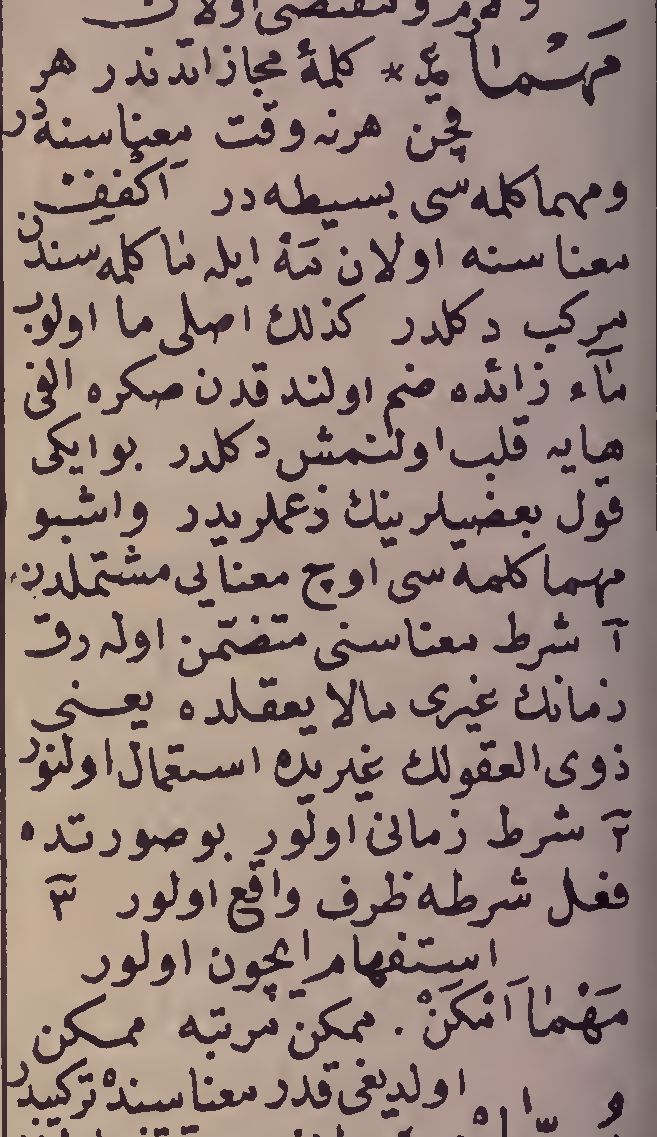 مَهْمَا ع * كلمۀ مجازاتدندر هر
قچن هرنه وقت معناسنه در
ومهما كلمه سی بسيطه در اُكفف
معناسنه اولان مَهْ ايله ما كلمه سندن
مركب دكلدر كذلك اصلی ما اولوب
مآء زائده ضم اولندقدن صكره الفی
هايه قلب اولنمش دكلدر بو ايكی
قول بعضيلرينك زعملريدر واشبو
مهما كلمه سی اوچ معنايی مشتملدر
۱ شرط معناسنی متضمن اوله رق
زمانك غيری مالايعقلده يعنی
ذوی العقولك غيريده استعمال اولنور
۲ شرط زمانی اولور بوصورتده
فعل شرطه ظرف واقع اولور ۳
استفهام ايچون اولور
مَهْمَا اَمْكَنْ . ممكن مرتبه ممكن
اولديغی قدر معناسنده تركيبدر